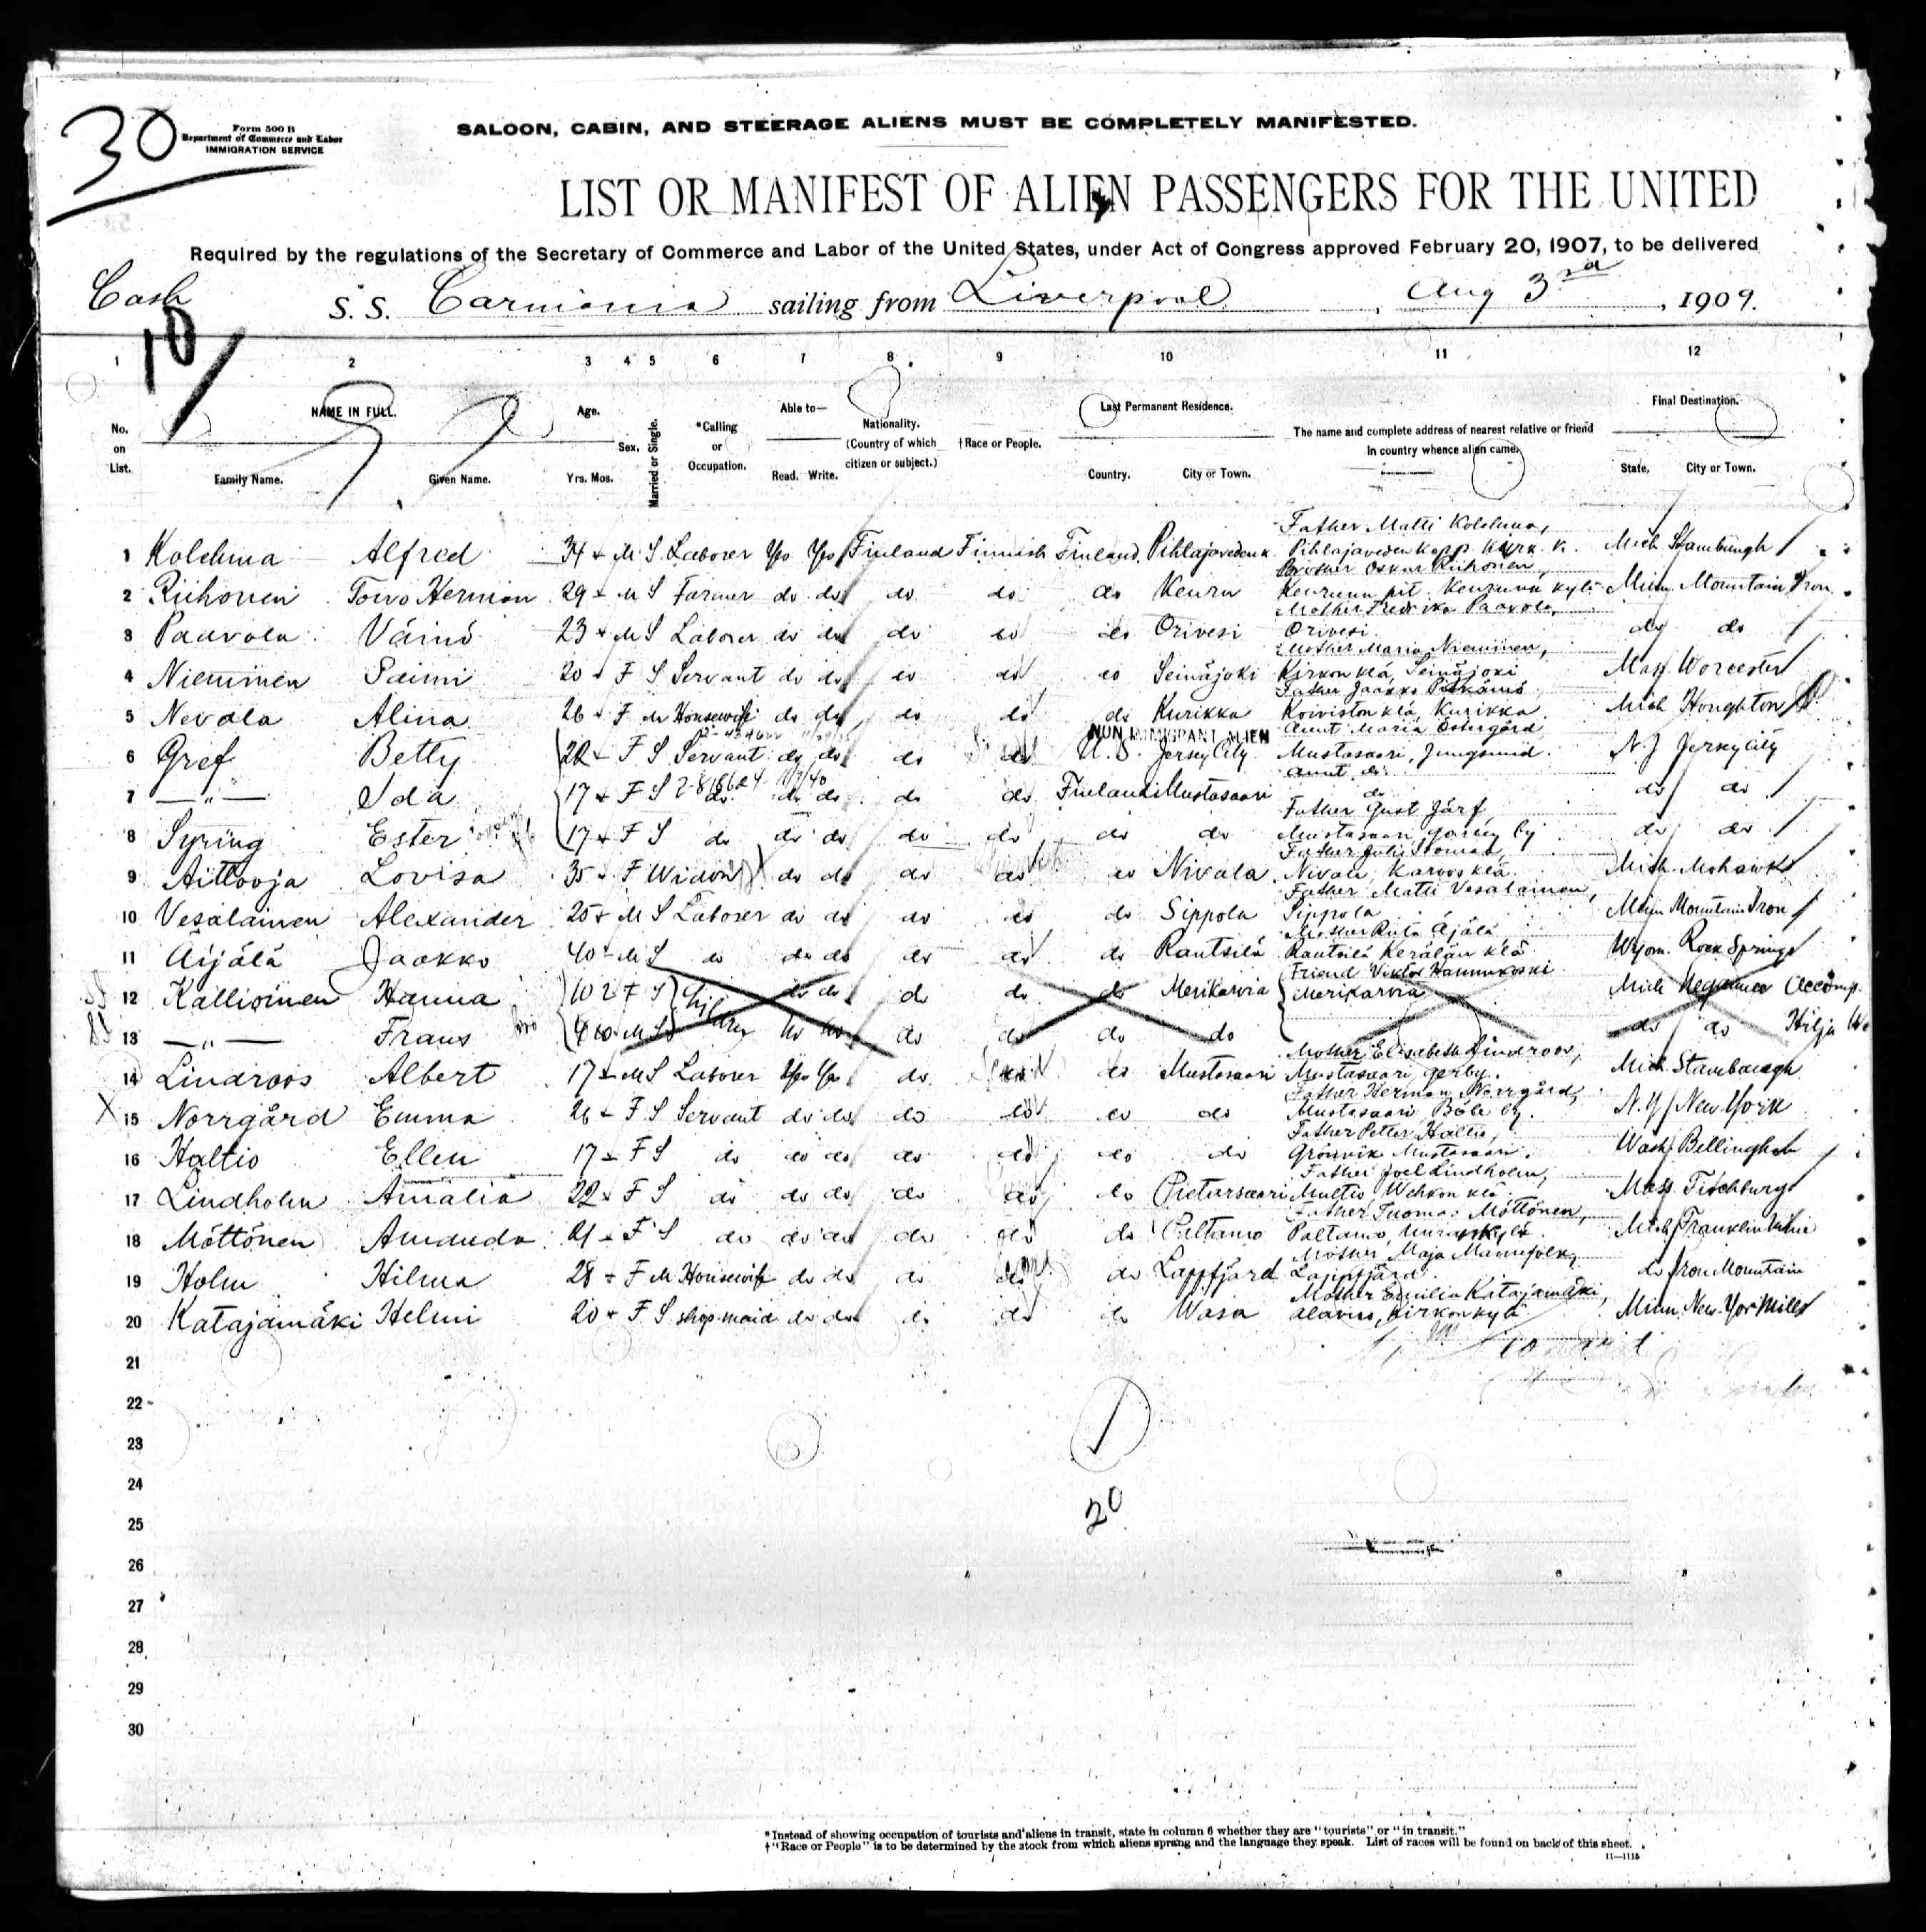 30
Form 500 B
Department of Commerce and Labor
IMMIGRATION SERVICE
SALOON, CABIN, AND STEERAGE ALIENS MUST BE COMPLETELY MANIFESTED.
LIST OR MANIFEST OF ALIEN PASSENGERS FOR THE UNITED
Required by the regulations of the Secretary of Commerce and Labor of the United States, under Act of Congress approved February 20, 1907, to be delivered
Cash
S. S. Carmania sailing from Liverpool, Aug 3rd, 1909.
10
1 2 3 4 5 6 7 8 9 10 11 12
No. on List.
NAME IN FULL.
Family Name. Given Name.
Age.
Yrs. Mos.
Sex.
Married or Single.
*Calling or Occupation.
Able to—
Read. Write.
Nationality.
(Country of which citizen or subject.)
†Race or People.
Last Permanent Residence.
Country. City or Town.
The name and complete address of nearest relative or friend in country whence alien came.
Final Destination.
State, City or Town.
Father Matti
1 Alfred 34 M S Laborer Yes Yes Finland Finnish Finland Pihlajaveden k. Pihlajaveden Kapp. Kirk. k. Mich Stambaugh
Brother Oskar Riihonen,
2 Riihonen Toivo Herman 29 M S Farmer do do do do do Keuru Keuruun pit. Keuruun kylä Minn Mountain Iron
Mother Fredrika Paavola,
3 Paavola Väinö 23 M S Laborer do do do do do Orivesi Orivesi do do
Mother Maria Nieminen,
4 Nieminen Saimi 20 F S Servant do do do do do Seinäjoki Kirkon klä, Seinäjoki Mass Worcester
Father Jaakko
5 Nevala Alina 26 F M Housewife do do do do do Kurikka Koiviston klä, Kurikka Mich Houghton
NON IMMIGRANT ALIEN Aunt Maria Östergård
6 Gref Betty 22 F S Servant do do do do U.S. Jersey City Mustasaari, Jungsund N.J Jersey City
Aunt do
7 —"— Ida 17 F S do do do do do Finland Mustasaari do do do
Father Gust Järf,
8 Syring Ester 17 F S do do do do do do do Mustasaari, by do do
Father
9 Aittooja Lovisa 35 F Widow do do do do do Nivala Nivala, Karvos klä Mich Mohawk
Father Matti Vesalainen,
10 Vesalainen Alexander 25 M S Laborer do do do do do Sippola Sippola Minn Mountain Iron
Mother
11 Äijälä Jaakko 40 M S do do do do do do Rantsila Rantsila Kerälän klä Wyom. Rock Springs
Friend Viktor
12 Kallioinen Hanna 10 2 F S Children do do do do do Merikarvia Merikarvia Mich Negaunee Accomp.
13 —"— Frans M S do do do do do do Hilja
Mother Elisabeth Lindroos,
14 Lindroos Albert 17 M S Laborer Yes Yes do do Mustasaari Mustasaari, Gerby. Mich Stambaugh
Father Herman Norrgård,
X 15 Norrgård Emma 26 F S Servant do do do do do do Mustasaari, Böle by. N.Y New York
Father Petter Haltio,
16 Haltio Ellen 17 F S do do do do do do do Grönvik Mustasaari. Wash Bellingham
Father Joel Lindholm,
17 Lindholm Amalia 22 F S do do do do do do Pietarsaari Mass Fitchburg
Father Tuomas Möttönen,
18 Möttönen Amanda 21 F S do do do do do do Paltamo Paltamo, Mich Franklin Mine
Mother Maja
19 Holm Hilma 28 F M Housewife do do do do do Lappfjärd Lappfjärd. do Iron Mountain
Mother Emilia Katajamäki,
20 Katajamäki Helmi 20 F S shop-maid do do do do do Wasa Alavus, Kirkonkylä Minn New York Mills
21
22
23
24
20
25
26
27
28
29
30
*Instead of showing occupation of tourists and aliens in transit, state in column 6 whether they are "tourists" or "in transit."
†"Race or People" is to be determined by the stock from which aliens sprang and the language they speak. List of races will be found on back of this sheet.
11—1115